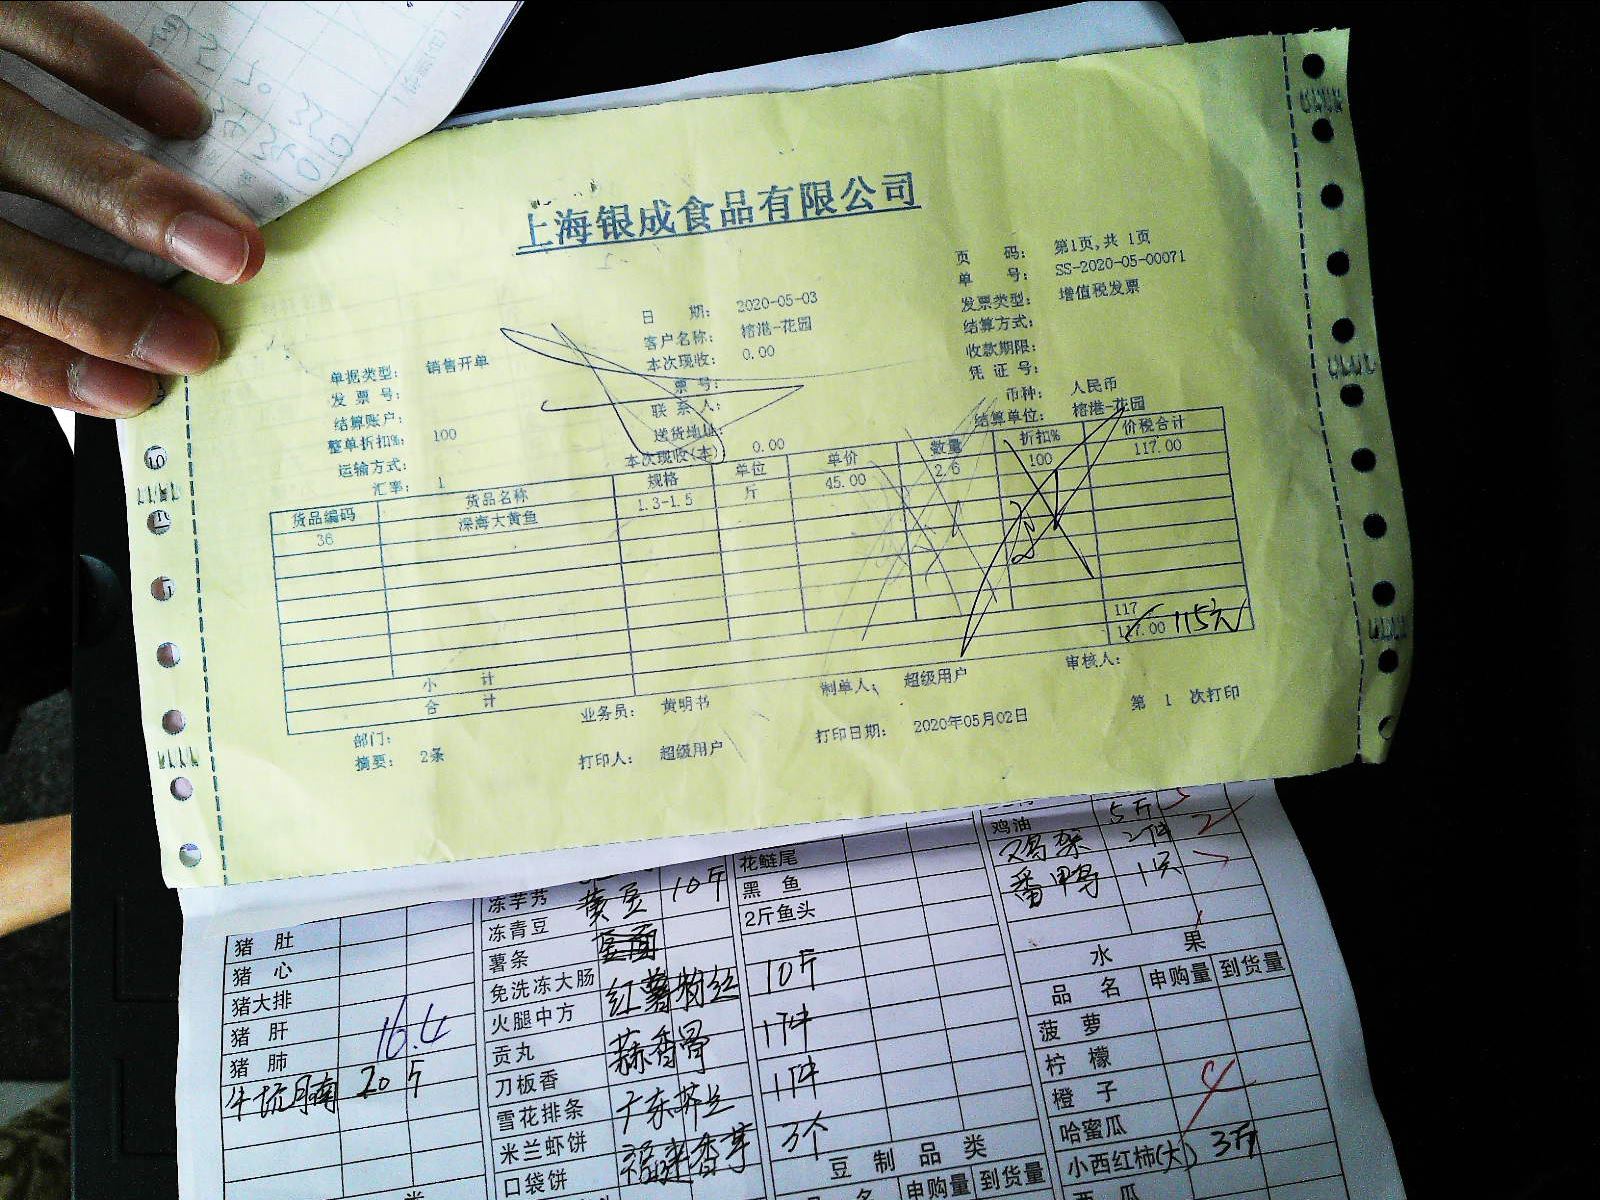 上海银成食品有限公司
页 码: 第1页,共 1页
单 号: SS-2020-05-00071
日 期: 2020-05-03
发票类型: 增值税发票
客户名称: 榕港-花园
结算方式:
单据类型: 销售开单
本次现收: 0.00
收款期限:
发 票 号:
票 号:
凭 证 号:
结算账户:
联 系 人:
币种: 人民币
整单折扣%: 100
送货地址:
结算单位: 榕港-花园
运输方式:
本次现收(本) 0.00
汇率: 1
货品编码 货品名称 规格 单位 单价 数量 折扣% 价税合计
36 深海大黄鱼 1.3-1.5 斤 45.00 2.6 100 117.00
小 计 117
合 计 117.00 115元
业务员: 黄明书 制单人: 超级用户 审核人:
部门:
摘要: 2条 打印人: 超级用户 打印日期: 2020年05月02日 第 1 次打印
猪 肚
猪 心
猪大排
猪 肝 16.4
猪 肺
牛坑腩 20斤
冻芋艿 黄豆 10斤
冻青豆
薯条
免洗冻大肠 红薯粉丝 10斤
火腿中方
贡丸 蒜香骨 1件
刀板香
雪花排条 1件
米兰虾饼 福建香芋 3个
口袋饼
花鲢尾
黑 鱼
2斤鱼头
豆 制 品 类
品 名 申购量 到货量
鸡油 5斤
鸡架 2件 2
番鸭 1只
水 果
品 名 申购量 到货量
菠 萝
柠 檬
橙 子 4
哈蜜瓜
小西红柿(大) 3斤
西 瓜